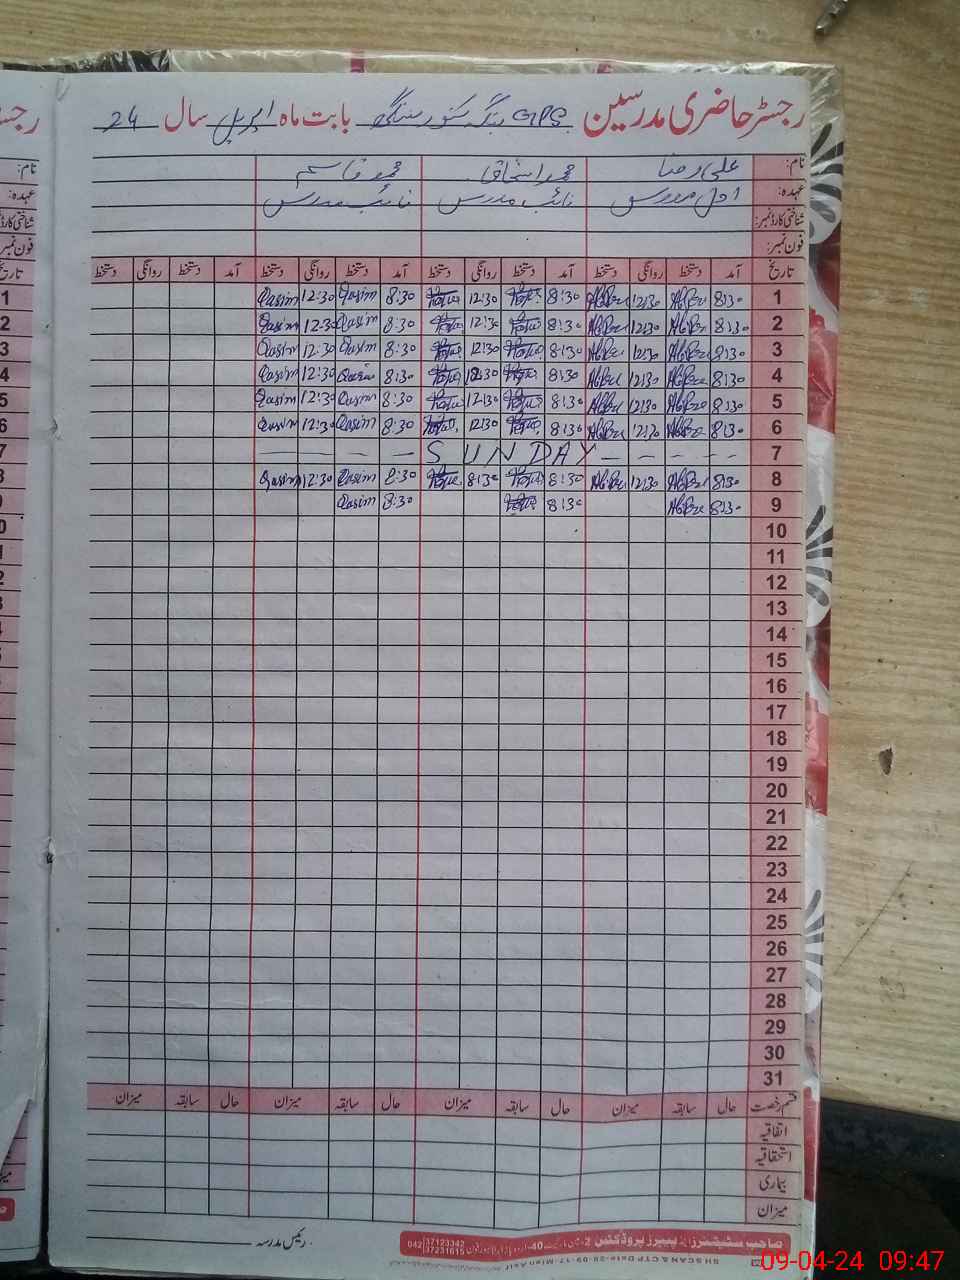 رجسٹر حاضری مدرسین GPS بابت ماہ اپریل سال 24
نام: علی رضا محمد اسحاق محمد قاسم
عہدہ: اول مدرس نائب مدرس نائب مدرس
شناختی کارڈ نمبر:
فون نمبر:
تاریخ آمد دستخط روانگی دستخط آمد دستخط روانگی دستخط آمد دستخط روانگی دستخط آمد دستخط روانگی دستخط
1 8:30 12:30 8:30 12:30 8:30 Qasim 12:30 Qasim
2 8:30 12:30 8:30 12:30 8:30 Qasim 12:30 Qasim
3 8:30 12:30 8:30 12:30 8:30 Qasim 12:30 Qasim
4 8:30 12:30 8:30 12:30 8:30 Qasim 12:30 Qasim
5 8:30 12:30 8:30 12:30 8:30 Qasim 12:30 Qasim
6 8:30 12:30 8:30 12:30 8:30 Qasim 12:30 Qasim
7 SUNDAY
8 8:30 12:30 8:30 8:30 8:30 Qasim 12:30 Qasim
9 8:30 8:30 8:30 Qasim
10
11
12
13
14
15
16
17
18
19
20
21
22
23
24
25
26
27
28
29
30
31
قسم رخصت حال سابقہ میزان حال سابقہ میزان حال سابقہ میزان حال سابقہ میزان
اتفاقیہ
استحقاقیہ
بیماری
میزان
رئیس مدرسہ
صاحب سٹیشنرز اینڈ پیپرز پروڈکٹس
042 37123342
37231615
09-04-24 09:47